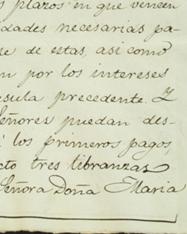 plazos en que vencen
dades necesarias pa-
se de estas, asi como
n por los intereses
sula precedente. Y
Señores puedan des-
i los primeros pagos,
cto tres libranzas
Señora Doña Maria